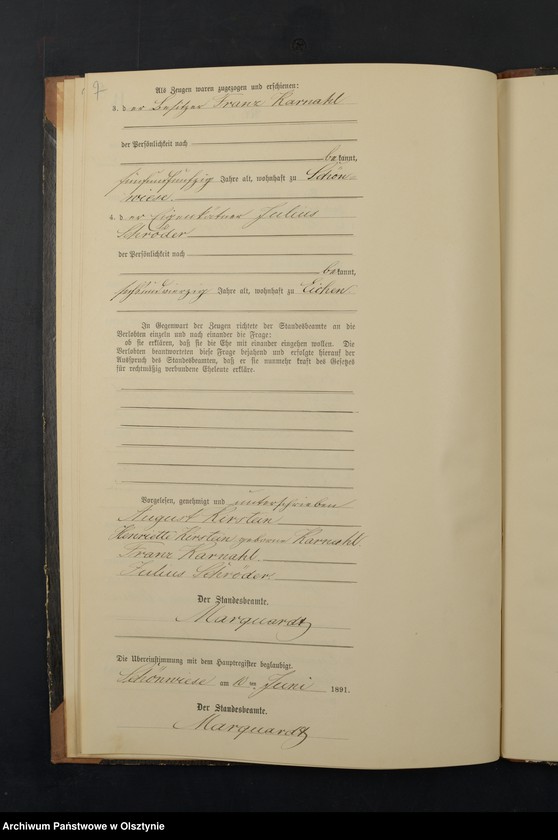 Als Zeugen waren zugezogen und erschienen:
3. der Besitzer Franz Karnahl
der Persönlichkeit nach
bekannt,
fünfundfünfzig Jahre alt, wohnhaft zu Schön-
wiese
4. der Eigenkätner Julius
Schröder
der Persönlichkeit nach
bekannt,
sechsundvierzig Jahre alt, wohnhaft zu Eichen
In Gegenwart der Zeugen richtete der Standesbeamte an die
Verlobten einzeln und nach einander die Frage:
ob sie erklären, daß sie die Ehe mit einander eingehen wollen. Die
Verlobten beantworteten diese Frage bejahend und erfolgte hierauf der
Ausspruch des Standesbeamten, daß er sie nunmehr kraft des Gesetzes
für rechtmäßig verbundene Eheleute erkläre.
Vorgelesen, genehmigt und unterschrieben
August Kirstan
Henriette Kirstan geborene Karnahl
Franz Karnahl
Julius Schröder
Der Standesbeamte.
Marquardt
Die Übereinstimmung mit dem Hauptregister beglaubigt.
Schönwiese am 10ten Juni 1891.
Der Standesbeamte.
Marquardt
Archiwum Państwowe w Olsztynie